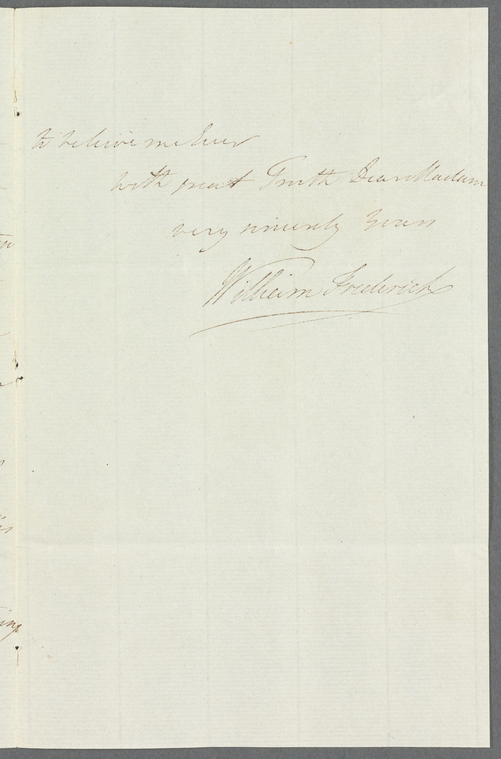 to believe me Ever
with great Truth Dear Madam
very sincerely Yours
William Frederick